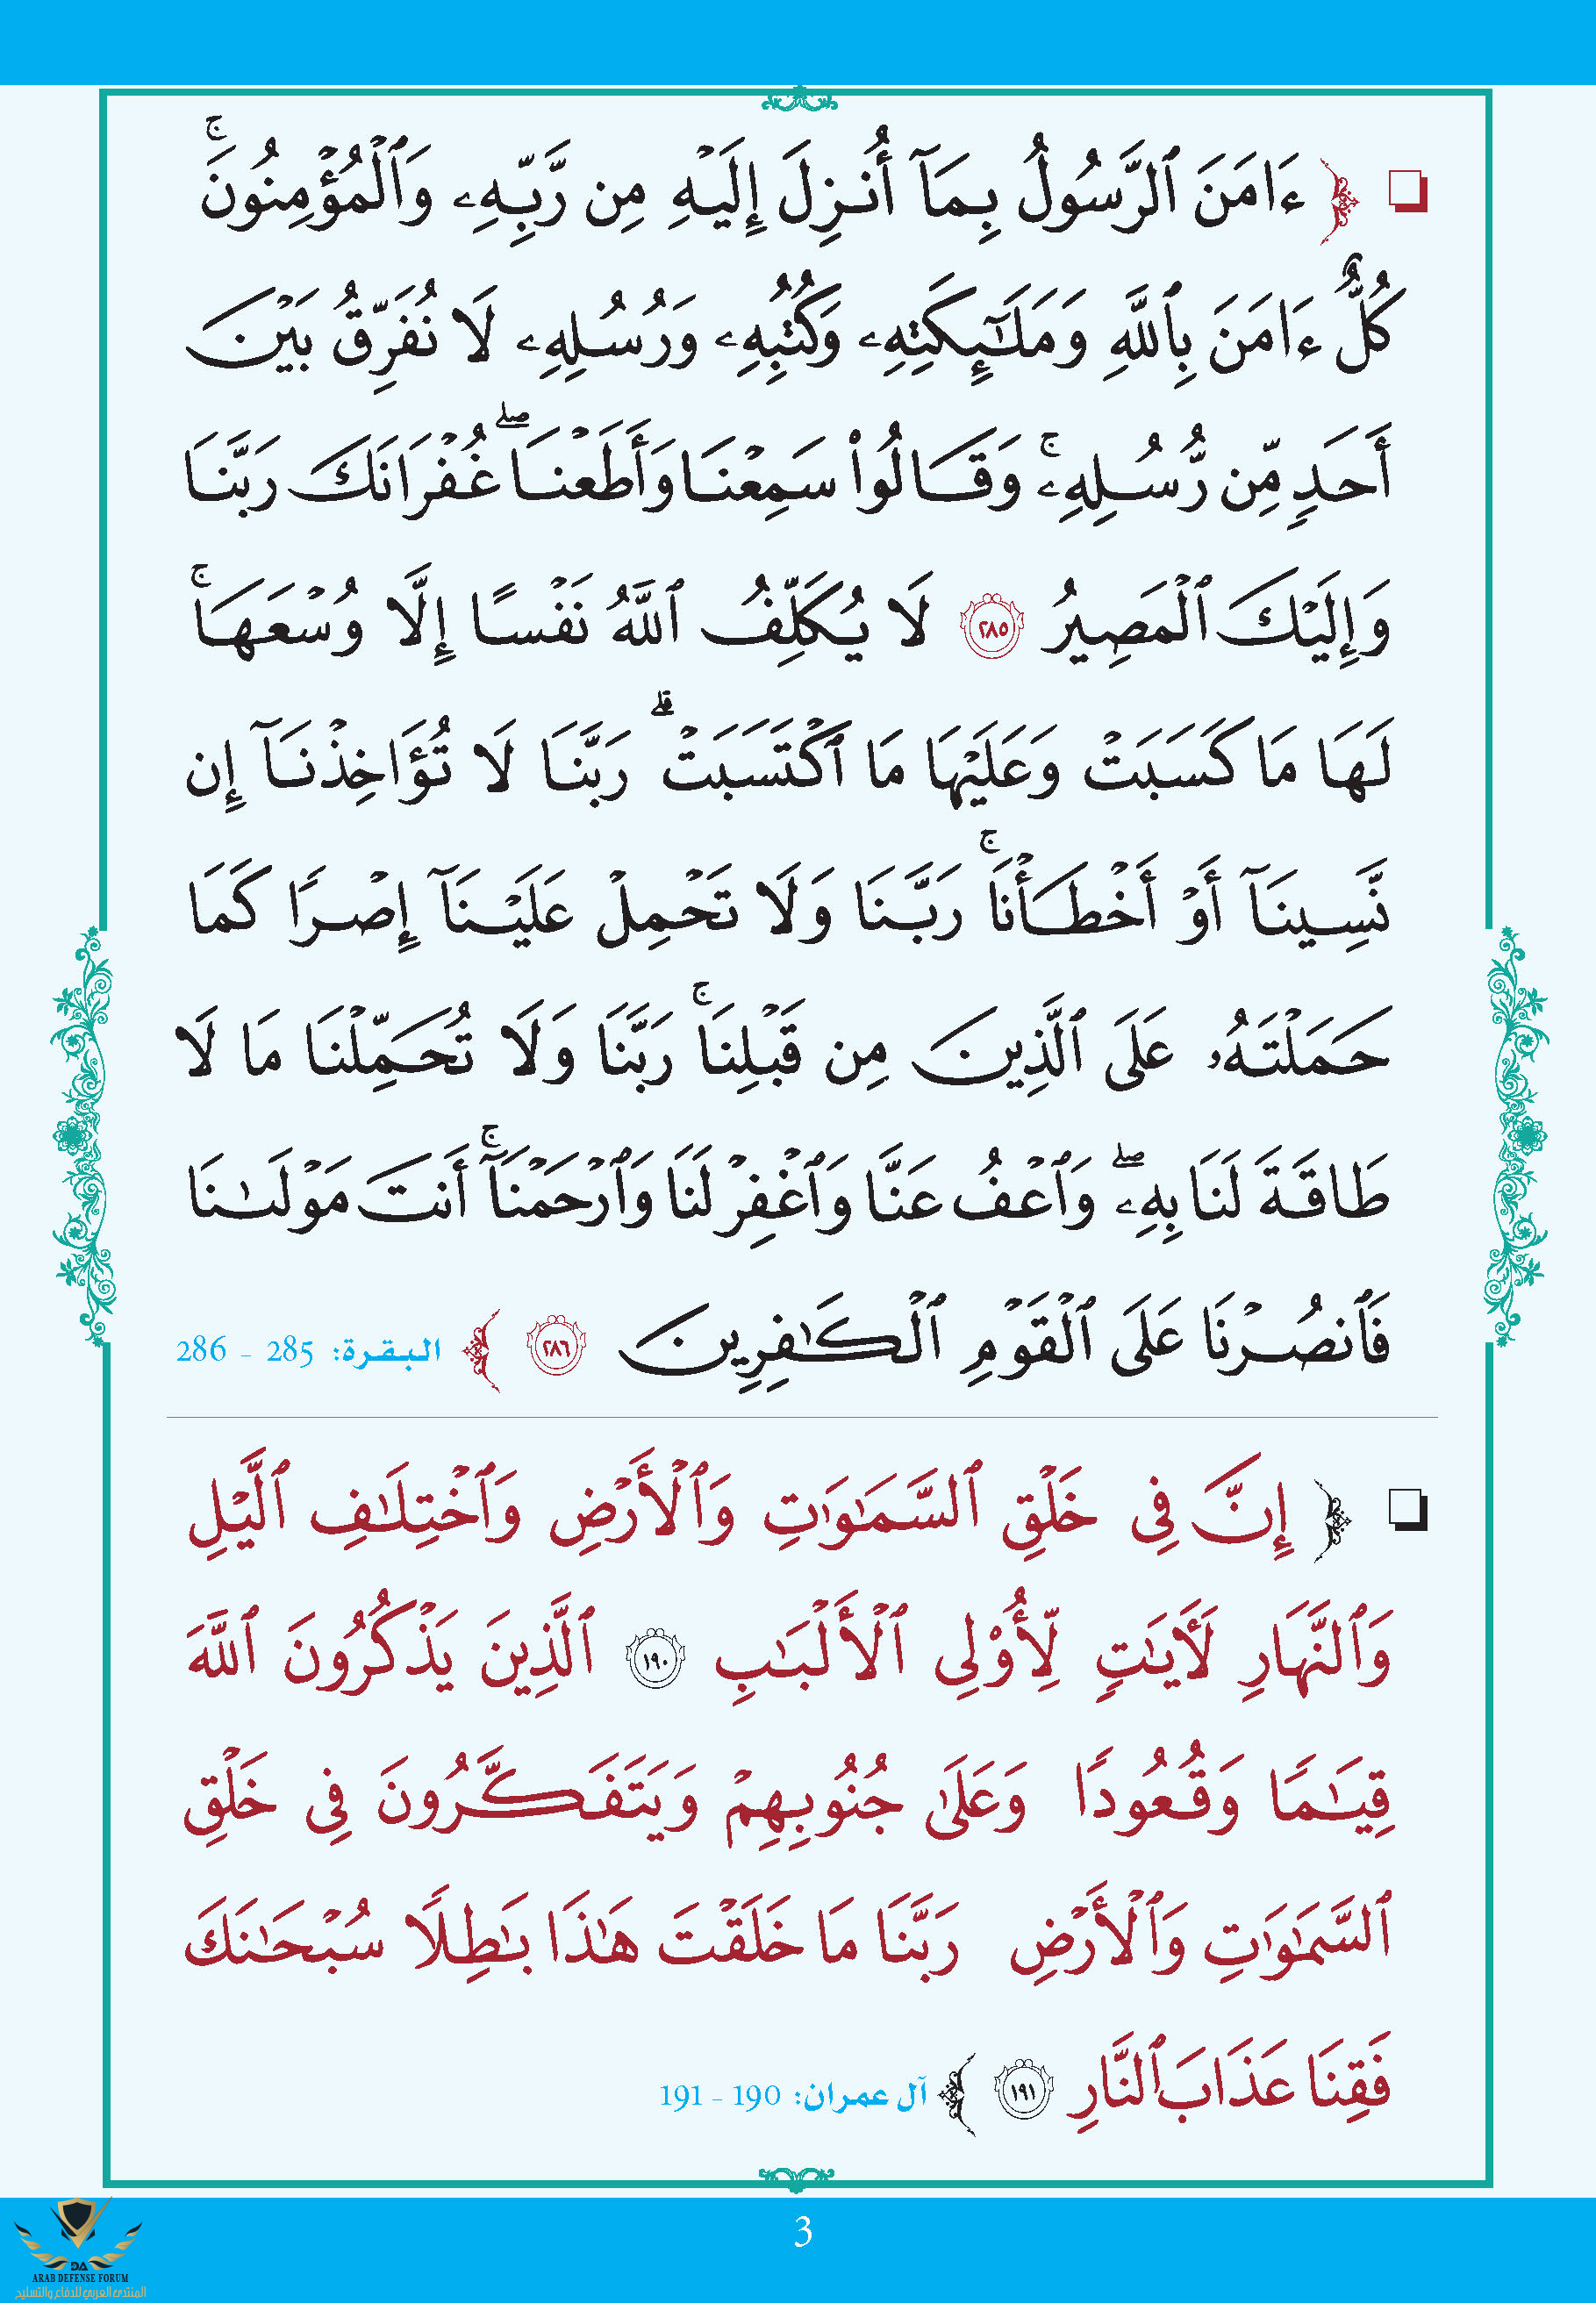 ﴿ ءَامَنَ ٱلرَّسُولُ بِمَآ أُنزِلَ إِلَيْهِ مِن رَّبِّهِۦ وَٱلْمُؤْمِنُونَ ۚ
كُلٌّ ءَامَنَ بِٱللَّهِ وَمَلَـٰٓئِكَتِهِۦ وَكُتُبِهِۦ وَرُسُلِهِۦ لَا نُفَرِّقُ بَيْنَ
أَحَدٍ مِّن رُّسُلِهِۦ ۚ وَقَالُوا۟ سَمِعْنَا وَأَطَعْنَا ۖ غُفْرَانَكَ رَبَّنَا
وَإِلَيْكَ ٱلْمَصِيرُ ٢٨٥ لَا يُكَلِّفُ ٱللَّهُ نَفْسًا إِلَّا وُسْعَهَا ۚ
لَهَا مَا كَسَبَتْ وَعَلَيْهَا مَا ٱكْتَسَبَتْ ۗ رَبَّنَا لَا تُؤَاخِذْنَآ إِن
نَّسِينَآ أَوْ أَخْطَأْنَا ۚ رَبَّنَا وَلَا تَحْمِلْ عَلَيْنَآ إِصْرًا كَمَا
حَمَلْتَهُۥ عَلَى ٱلَّذِينَ مِن قَبْلِنَا ۚ رَبَّنَا وَلَا تُحَمِّلْنَا مَا لَا
طَاقَةَ لَنَا بِهِۦ ۖ وَٱعْفُ عَنَّا وَٱغْفِرْ لَنَا وَٱرْحَمْنَآ ۚ أَنتَ مَوْلَىٰنَا
فَٱنصُرْنَا عَلَى ٱلْقَوْمِ ٱلْكَـٰفِرِينَ ٢٨٦ ﴾ البقرة: 285 - 286
﴿ إِنَّ فِى خَلْقِ ٱلسَّمَـٰوَٰتِ وَٱلْأَرْضِ وَٱخْتِلَـٰفِ ٱلَّيْلِ
وَٱلنَّهَارِ لَـَٔايَـٰتٍ لِّأُو۟لِى ٱلْأَلْبَـٰبِ ١٩٠ ٱلَّذِينَ يَذْكُرُونَ ٱللَّهَ
قِيَـٰمًا وَقُعُودًا وَعَلَىٰ جُنُوبِهِمْ وَيَتَفَكَّرُونَ فِى خَلْقِ
ٱلسَّمَـٰوَٰتِ وَٱلْأَرْضِ رَبَّنَا مَا خَلَقْتَ هَـٰذَا بَـٰطِلًا سُبْحَـٰنَكَ
فَقِنَا عَذَابَ ٱلنَّارِ ١٩١ ﴾ آل عمران: 190 - 191
3
DA
ARAB DEFENSE FORUM
المنتدى العربي للدفاع والتسليح